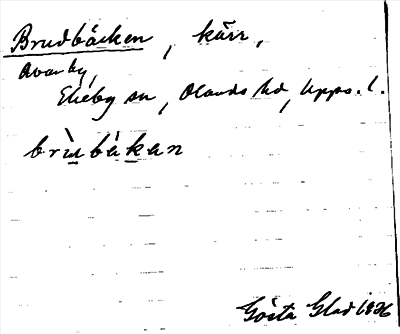 Brudbäcken, kärr,
Avanby,
Ekeby sn, Olands hd, Upps. l.
brùbäkan
Gösta Glad 1936